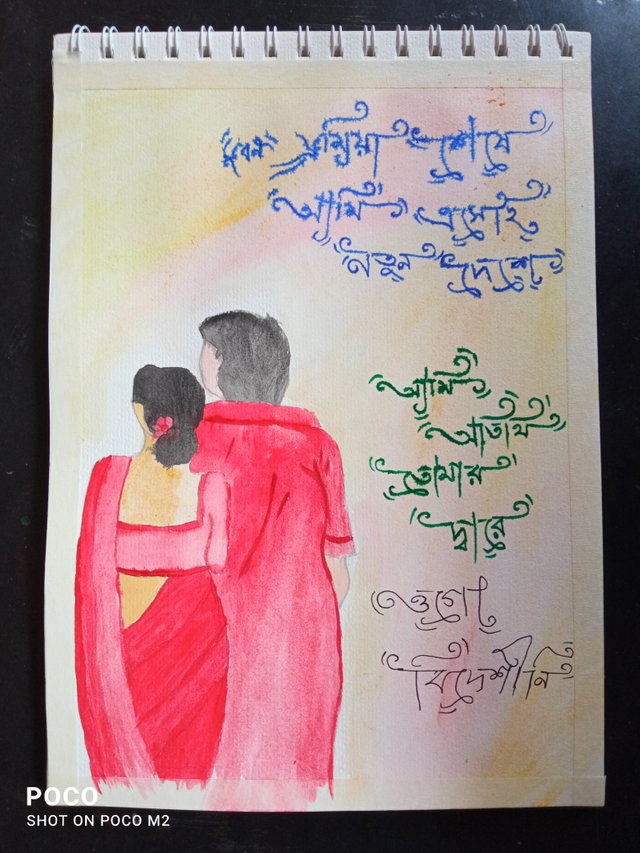 ভুবন ভ্রমিয়া শেষে
আমি এসেছি
নতুন দেশে
আমি
অতিথি
তোমার
দ্বারে
ওগো
বিদেশীনি
POCO
SHOT ON POCO M2